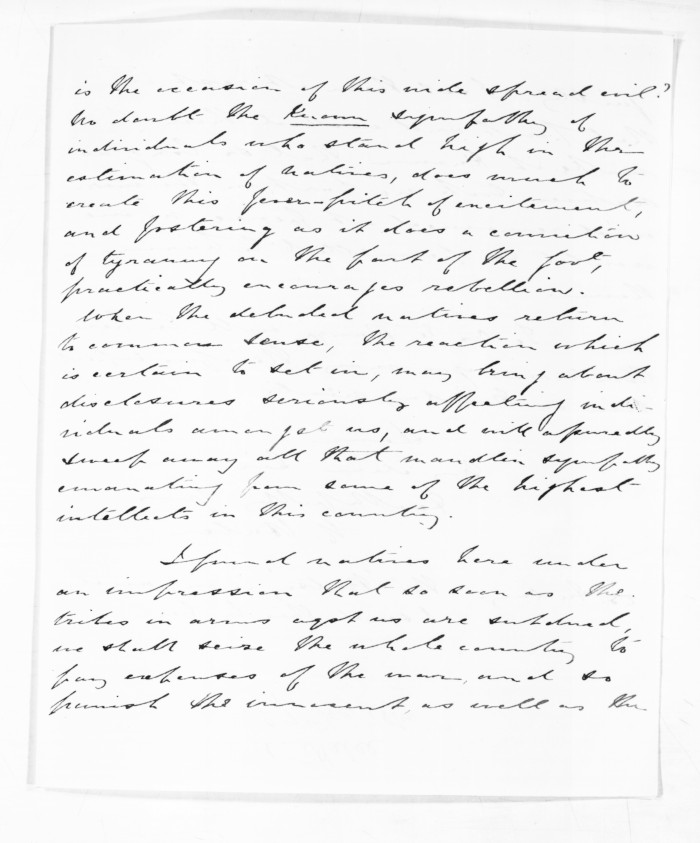 is the occasion of this wide spread evil?
No doubt the known sympathy of
individuals who stand high in the
estimation of natives, does much to
create this fever-pitch of excitement,
and fostering as it does a conviction
of tyranny on the part of the Govt,
practically encourages rebellion.
When the deluded natives return
to common sense, the reaction which
is certain to set in, may bring about
disclosures seriously affecting indi-
viduals amongst us, and will assuredly
sweep away all that maudlin sympathy
emanating from some of the highest
intellects in this country.
I found natives here under
an impression that so soon as the
tribes in arms agst us are subdued,
we shall seize the whole country to
pay expenses of the war, and so
punish the innocent, as well as the